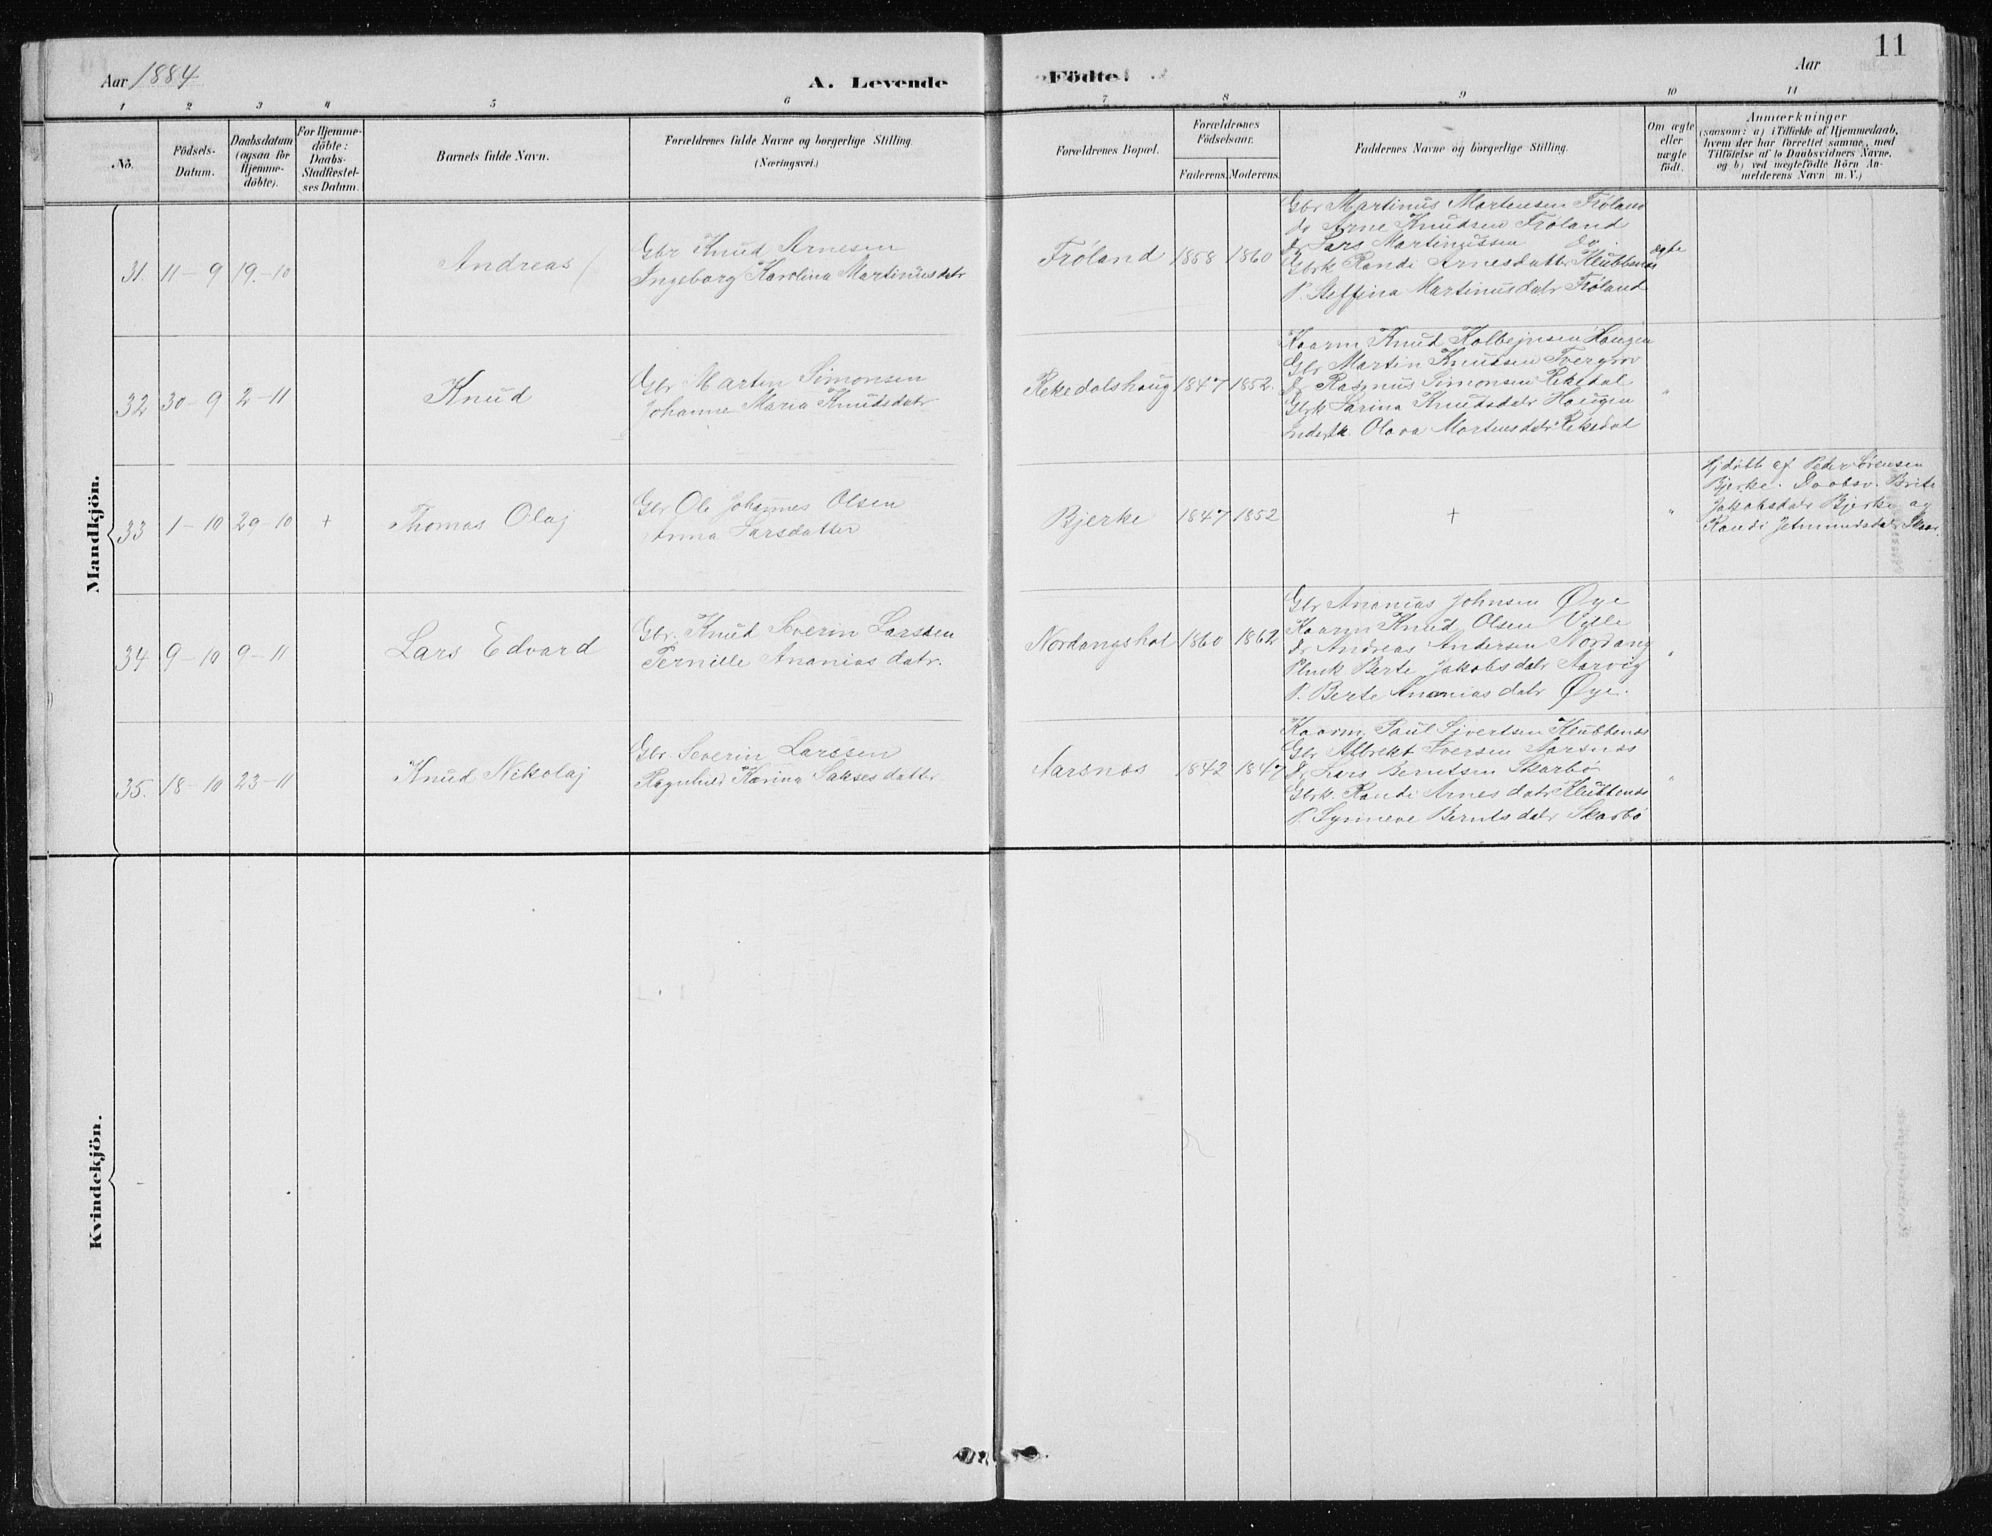 11
Aar 1884
A. Levende
Födte.
Aar
1 2 3 4 5 6 7 8 9 10 11
No.
Födsels-
Datum.
Daabsdatum
(ogsaa for
Hjemme-
döbte).
For Hjemme-
döbte:
Daabs-
Stadfæstel-
ses Datum.
Barnets fulde Navn.
Forældrenes fulde Navne og borgerlige Stilling.
(Næringsvei.)
Forældrenes Bopæl.
Forældrenes
Födselsaar.
Faderens. Moderens.
Faddernes Navne og borgerlige Stilling.
Om ægte
eller
uægte
födt.
Anmærkninger
(saasom: a) i Tilfælde af Hjemmedaab,
hvem der har forrettet samme, med
Tilföielse af to Daabsvidners Navne,
og b) ved uægtefödte Börn An-
melderens Navn m. V.)
Mandkjön.
31. 11-9 19-10
Andreas
Gbr Knud Arnesen
Ingeborg Karolina Martinusdatr
Frøland 1858 1860
Gbr Martinus Martensen Frøland
do Arne Knudsen Frøland
dr Lars Martinussen do.
Gbrk Randi Arnesdatter Klubbenes
P. Steffina Martinusdatr Frøland
ægte
32 30-9 2-11
Knud
Gbr Marten Simonsen
Johanne Maria Knudsdatr
Rekedalshaug 1847 1852.
Kaarm Knud Kolbejnsen Haugen
Gbr Martin Knudsen Tvergrov
dr Rasmus Simonsen Rekedal
Gbrk Karina Knudsdatr Haugen
Inderstk. Olava Martensdatr Rekedal
"
33 1-10 29-10 +
Thomas Olaj
Gbr Ole Johannes Olsen
Anna Larsdatter
Bjerke 1847 1852
+
"
Hjdøbt af Peder Sørensen
Bjerke. Daabsv. Brite
Jakobsdatr Bjerke og
Randi Jetmundsdatr
34 9-10 9-11
Lars Edvard
Gbr. Knud Severin Larssen
Pernille Ananiasdatr.
Nordangshol 1860 1862
Gbr Ananias Johnsen Øye
Kaarm Knud Olsen Ville
dr Andreas Andersen Nordang
Berte Jakobsdatr Aarvig
P. Berte Ananiasdatr Øye.
"
35. 18-10 23-11
Knud Nikolaj
Gbr Severin Larssen
Ragnhild Karina Saksesdatter
Aarsnes 1842 1847
Kaarm Paul Sivertsen Klubbenes
Gbr Albrekt Iversen Aarsnes
dr Lars Berntsen Skarbø
Gbrk. Randi Arnesdatr Klubbenes
P. Synneve Berntsdatr Skarbø
"
Kvindekjön.